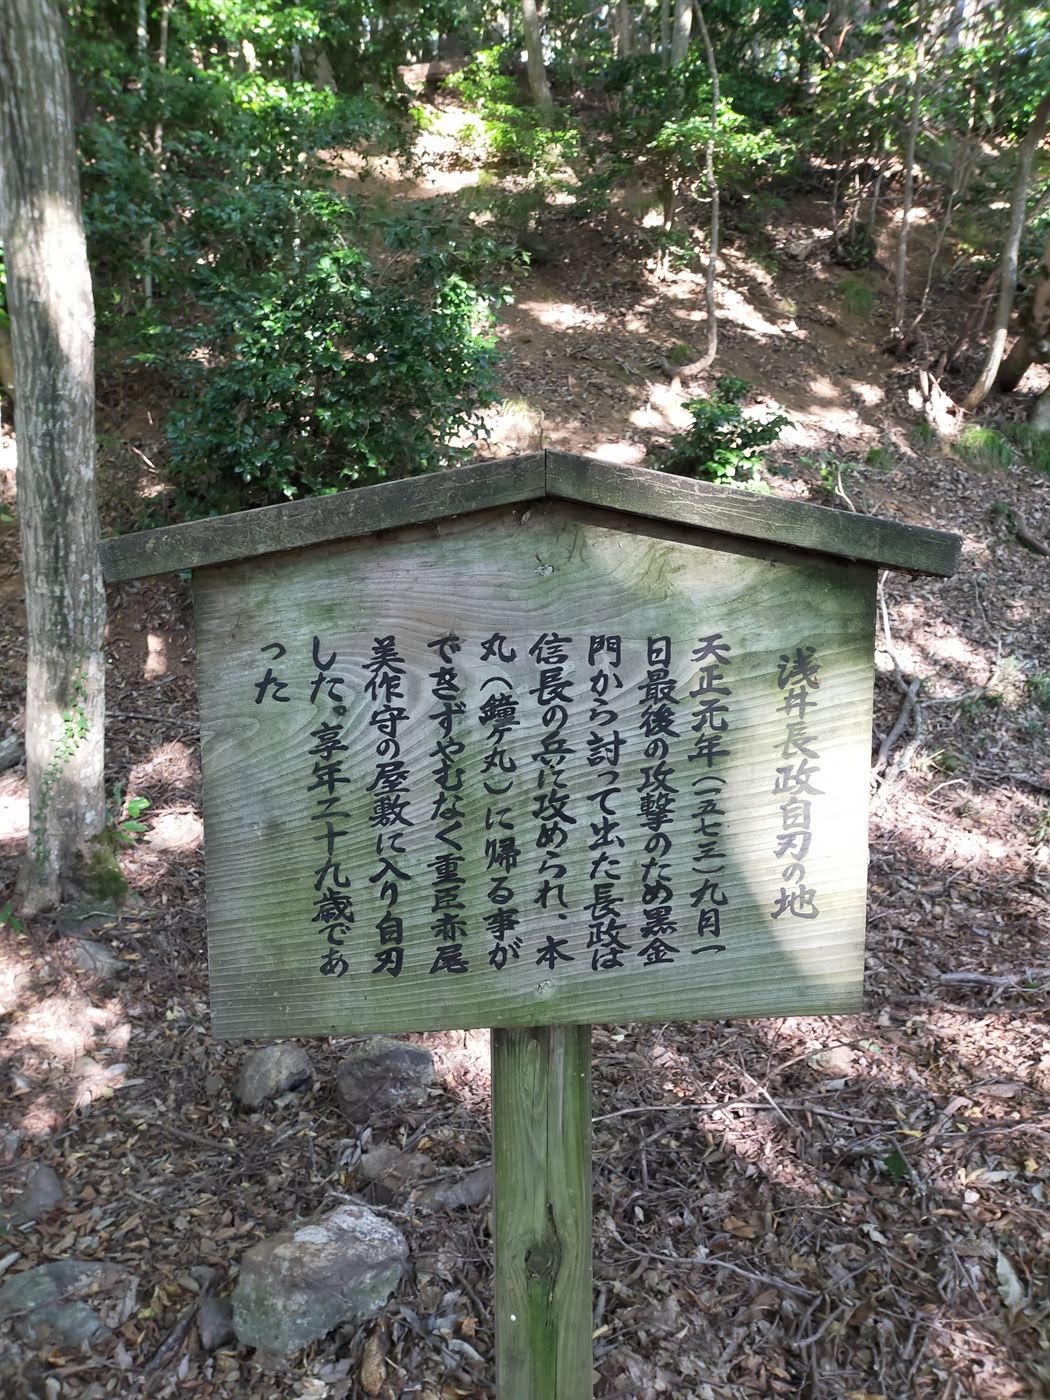 浅井長政自刃の地
天正元年(一五七三)九月一
日最後の攻撃のため黒金
門から討って出た長政は
信長の兵に攻められ、本
丸(鐘ヶ丸)に帰る事が
できずやむなく重臣赤尾
美作守の屋敷に入り自刃
した。享年二十九歳であ
った